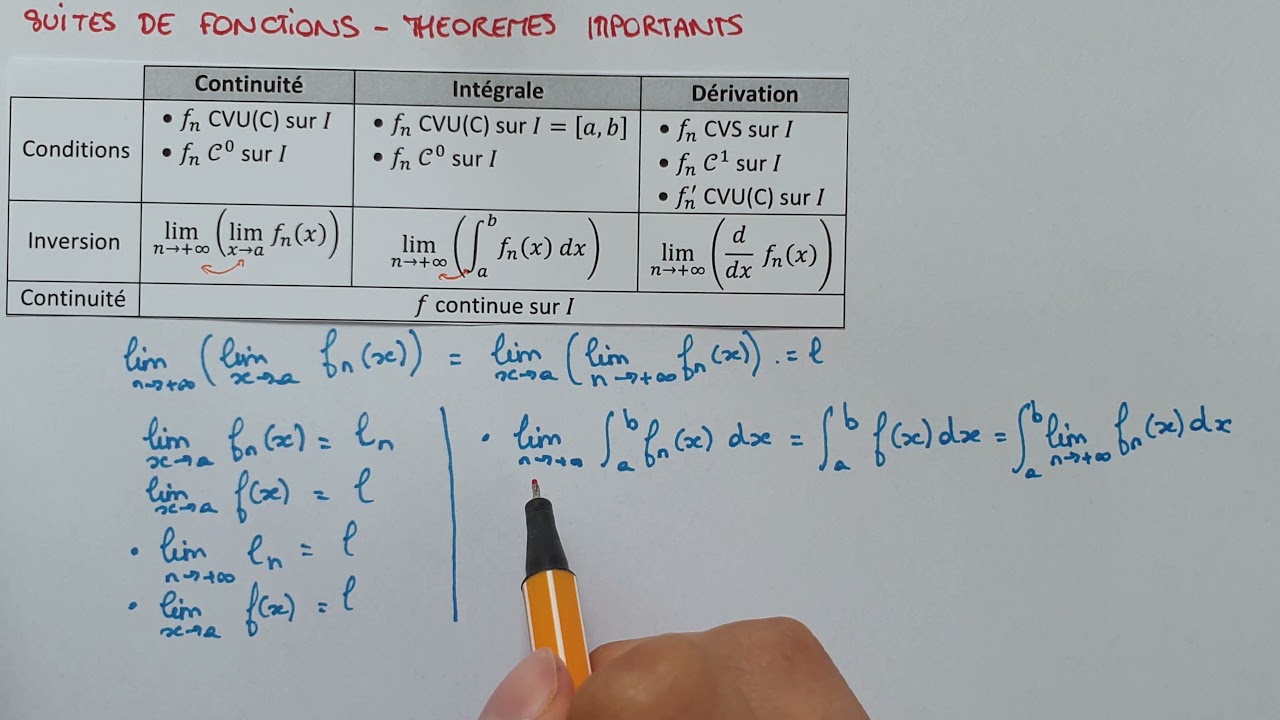 SUITES DE FONCTIONS - THEOREMES IMPORTANTS
Continuité Intégrale Dérivation
Conditions
• fₙ CVU(C) sur I
• fₙ C⁰ sur I
• fₙ CVU(C) sur I = [a, b]
• fₙ C⁰ sur I
• fₙ CVS sur I
• fₙ C¹ sur I
• fₙ′ CVU(C) sur I
Inversion
lim n→+∞ (lim x→a fₙ(x))
lim n→+∞ (∫ₐᵇ fₙ(x) dx)
lim n→+∞ (d/dx fₙ(x))
Continuité f continue sur I
lim n→+∞ (lim x→a fₙ(x)) = lim x→a (lim n→+∞ fₙ(x)) . = l
lim x→a fₙ(x) = lₙ
lim x→a f(x) = l
• lim n→+∞ lₙ = l
• lim x→a f(x) = l
• lim n→+∞ ∫ₐᵇ fₙ(x) dx = ∫ₐᵇ f(x) dx = ∫ₐᵇ lim n→+∞ fₙ(x) dx